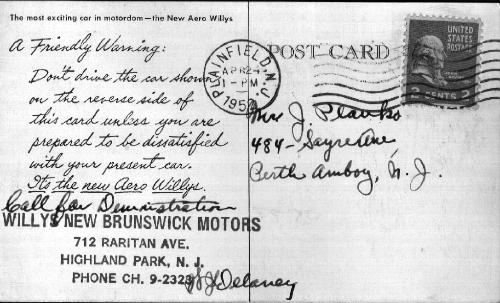 The most exciting car in motordom—the New Aero Willys
A Friendly Warning:
Don't drive the car shown
on the reverse side of
this card unless you are
prepared to be dissatisfied
with your present car.
Its the new Aero Willys.
Call for Demonstration
WILLYS NEW BRUNSWICK MOTORS
712 RARITAN AVE.
HIGHLAND PARK, N. J.
PHONE CH. 9-2323
W J Delaney
POST CARD
PLAINFIELD, N.J.
APR 24
1-PM
1952
UNITED
STATES
POSTAGE
2 CENTS 2
J. Planko
484- Sayre Ave
Perth Amboy, N. J.